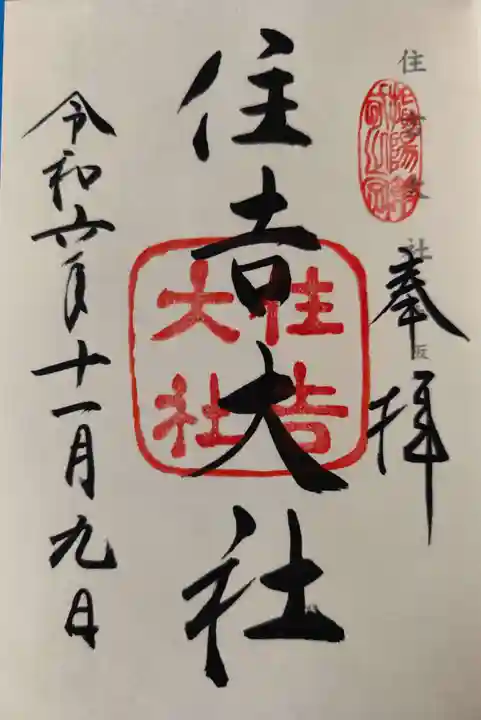 住吉大社
奉拝
住吉大社
住吉
大社
令和六年十一月九日